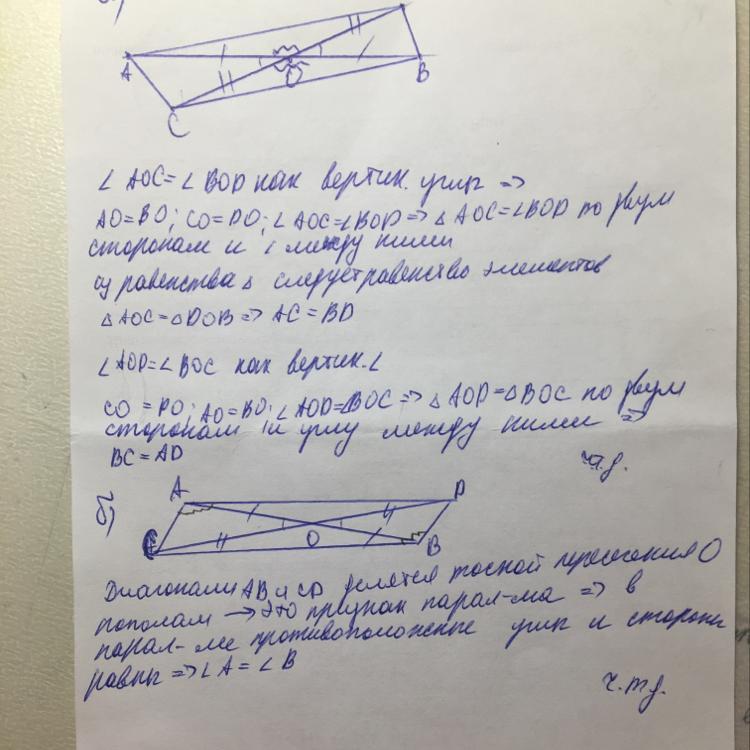 A
O
B
C
∠ AOC = ∠ BOD как вертик. углы =>
AO=BO; CO=DO; ∠ AOC=∠BOD => △ AOC=∠BOD по двум
сторонам и ∠ между ними
из равенства △ следует равенство элементов
△ AOC=△DOB => AC = BD
∠ AOD=∠ BOC как вертик. ∠
CO = DO; AO=BO; ∠ AOD=∠BOC => △ AOD=△BOC по двум
сторонам и углу между ними =>
BC = AD
ч.т.д.
б)
A
D
C
O
B
Диагонали AB и CD делятся точкой пересечения O
пополам → это признак парал-ма => в
парал-ме противоположные углы и стороны
равны => ∠ A = ∠ B
ч.т.д.